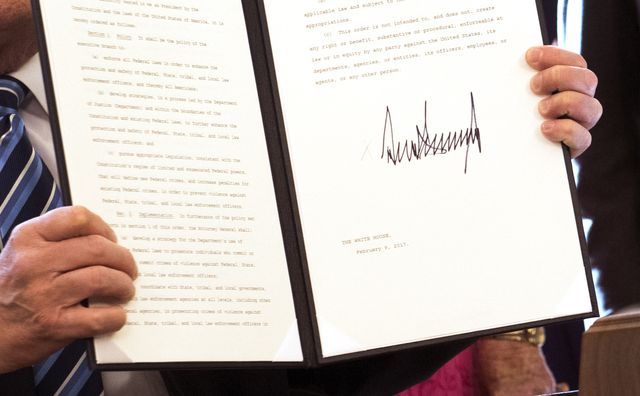 Constitution and the laws of the United States of America, it is
hereby ordered as follows:
Section 1. Policy. It shall be the policy of the
executive branch to:
(a) enforce all Federal laws in order to enhance the
protection and safety of Federal, State, tribal, and local law
enforcement officers, and thereby all Americans;
(b) develop strategies, in a process led by the Department
of Justice (Department) and within the boundaries of the
Constitution and existing Federal laws, to further enhance the
protection and safety of Federal, State, tribal, and local law
enforcement officers; and
(c) pursue appropriate legislation, consistent with the
Constitution's regime of limited and enumerated Federal powers,
that will define new Federal crimes, and increase penalties for
existing Federal crimes, in order to prevent violence against
Federal, State, tribal, and local law enforcement officers.
Sec. 2. Implementation. In furtherance of the policy set
forth in section 1 of this order, the Attorney General shall:
(a) develop a strategy for the Department's use of
Federal laws to prosecute individuals who commit or
commit crimes of violence against Federal, State,
and local law enforcement officers;
coordinate with State, tribal, and local governments,
law enforcement agencies at all levels, including other
Federal agencies, in prosecuting crimes of violence against
Federal, State, tribal, and local law enforcement officers in
applicable law and subject to
appropriations.
(c) This order is not intended to, and does not, create
any right or benefit, substantive or procedural, enforceable at
law or in equity by any party against the United States, its
departments, agencies, or entities, its officers, employees, or
agents, or any other person.
THE WHITE HOUSE,
February 9, 2017.